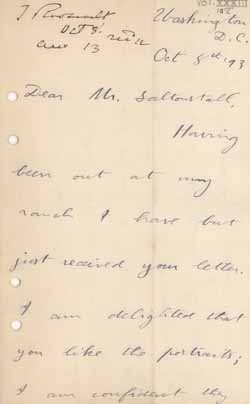 T Roosevelt
Oct 8.
ans 13
VOL. XXXIII
Washington
D.C.
Oct 8th 93
Dear Mr. Saltonstall,
Having
been out at my
ranch I have but
just received your letter.
I am delighted that
you like the portraits;
I am confident they